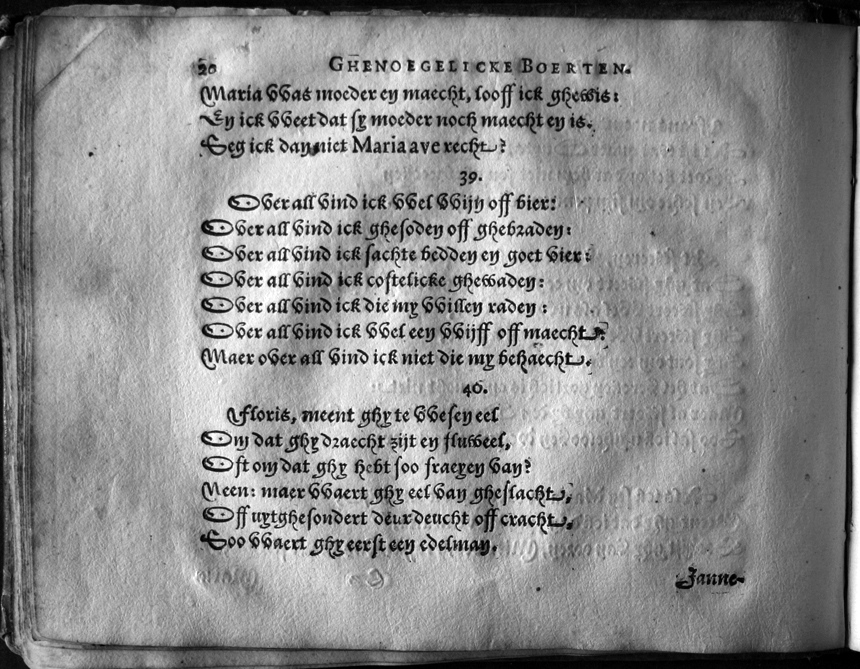 20 GHENOEGELICKE BOERTEN.
Maria was moeder en maecht, looff ick ghewis:
En ick weet dat sy moeder noch maecht en is.
Seg ick dan niet Maria ave recht?
39.
Over all vind ick wel wijn off bier:
Over all vind ick ghesoden off ghebraden:
Over all vind ick sachte bedden en goet vier:
Over all vind ick costelicke ghewaden:
Over all vind ick die my willen raden:
Over all vind ick wel een wijff off maecht:
Maer over all vind ick niet die my behaecht.
40.
Floris, meent ghy te wesen eel
Om dat ghy draecht zijt en fluweel,
Oft om dat ghy hebt soo fraeyen van?
Neen: maer waert ghy eel van gheslacht,
Off uytghesondert deur deucht off cracht,
Soo waert ghy eerst een edelman.
Janne